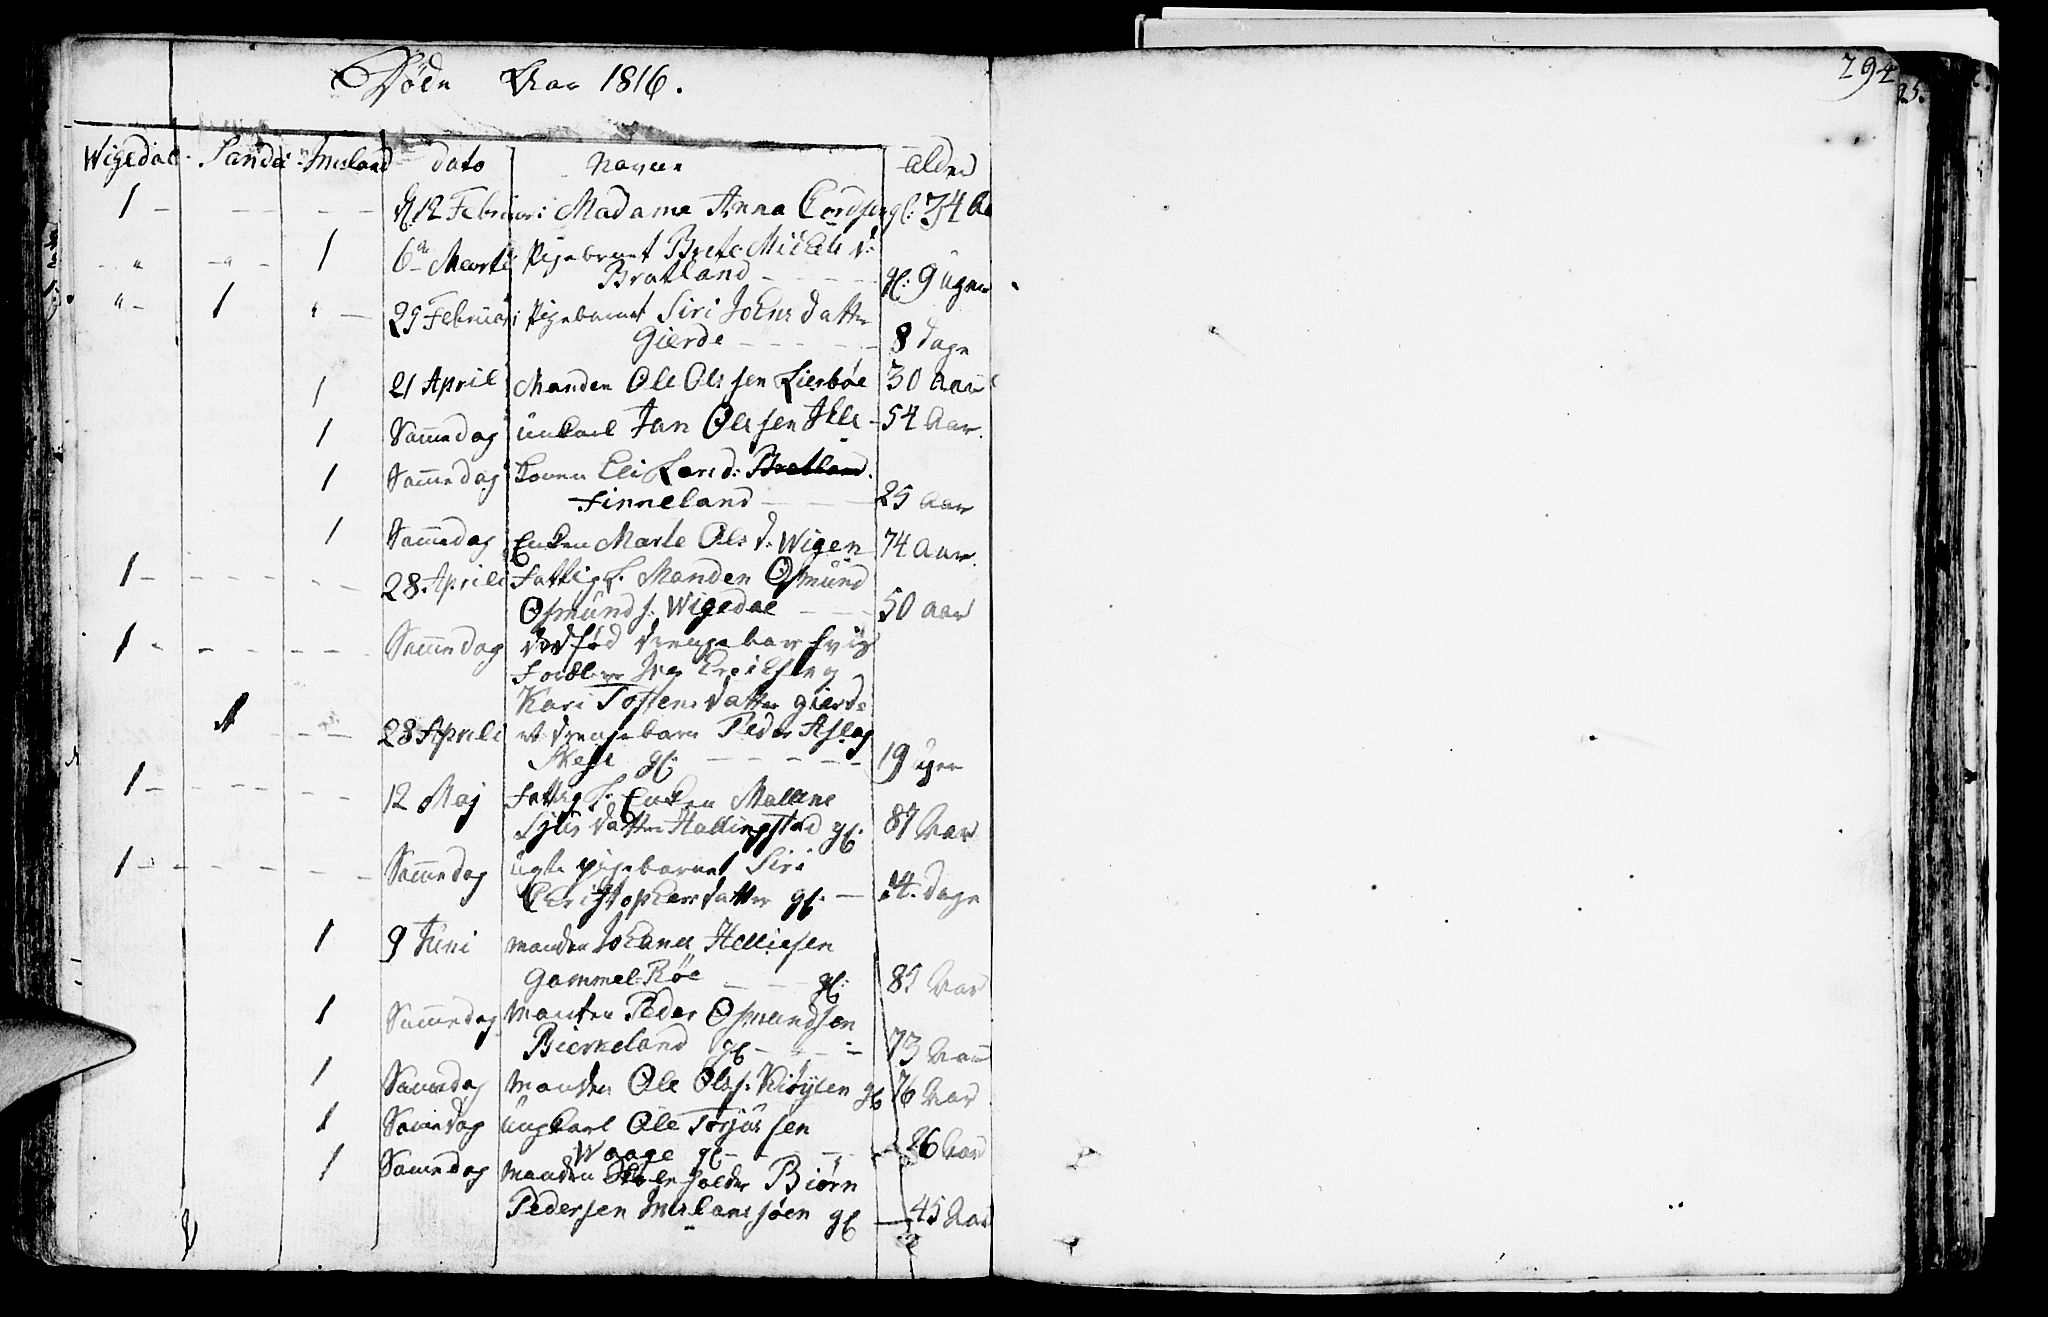 Døde Aar 1816.
294
25.
Wigedal - Sandei - Imsland dato navne alder
1 - d 12 Februar: Madame Anna Cordsen gl: 34 Aa
" " 1 6te Marti Pigebarnet Brete Michels d:
Bratland gl: 9 uger
" 1 " 29 Februari Pigebarnet Siri Johns datter
Gierde 8 dage
1 21 April Manden Ole Olssen Liesbøe 30 Aar
1 Samedag unkarl Jan Olessen 54 Aar.
1 Samedag konen Eli Lars d: Bratland.
Finneland 25 aar
1 Samedag Enken Marte Ols d: Wigen 74 Aar.
1 28. Aprili Fattig L. Manden Osmund
Osmunds. Wigedal 50 aar
1 Samedag dødfød drengebarn hvis
Foreldre Iver Erichsen og
Kari Tostens datter gierde
1 28 Aprili et drengebarn Peder Aslag
gl: 19 uger
1 12 Maj Fattig L. Enken Malene
Sjurs datter Hallingstad gl: 87 Aar
1 Samedag ægte pigebarnet Siri
Christophersdatter gl. 14. dage
1 9 Juni manden Johanes Helliesen
Gammel Røe gl: 85 Aar
1 Samedag Manden Peder Osmundsen
Bierkeland gl 73 Aar
1 Samedag Manden Ole Ols. gl 76 Aar
1 Samedag ungkarl Ole Torjussen
Waage gl 26 Aar
1 Samedag Manden Skoleholder Biørn
Pedersen Imslandsøen gl 45 Aar